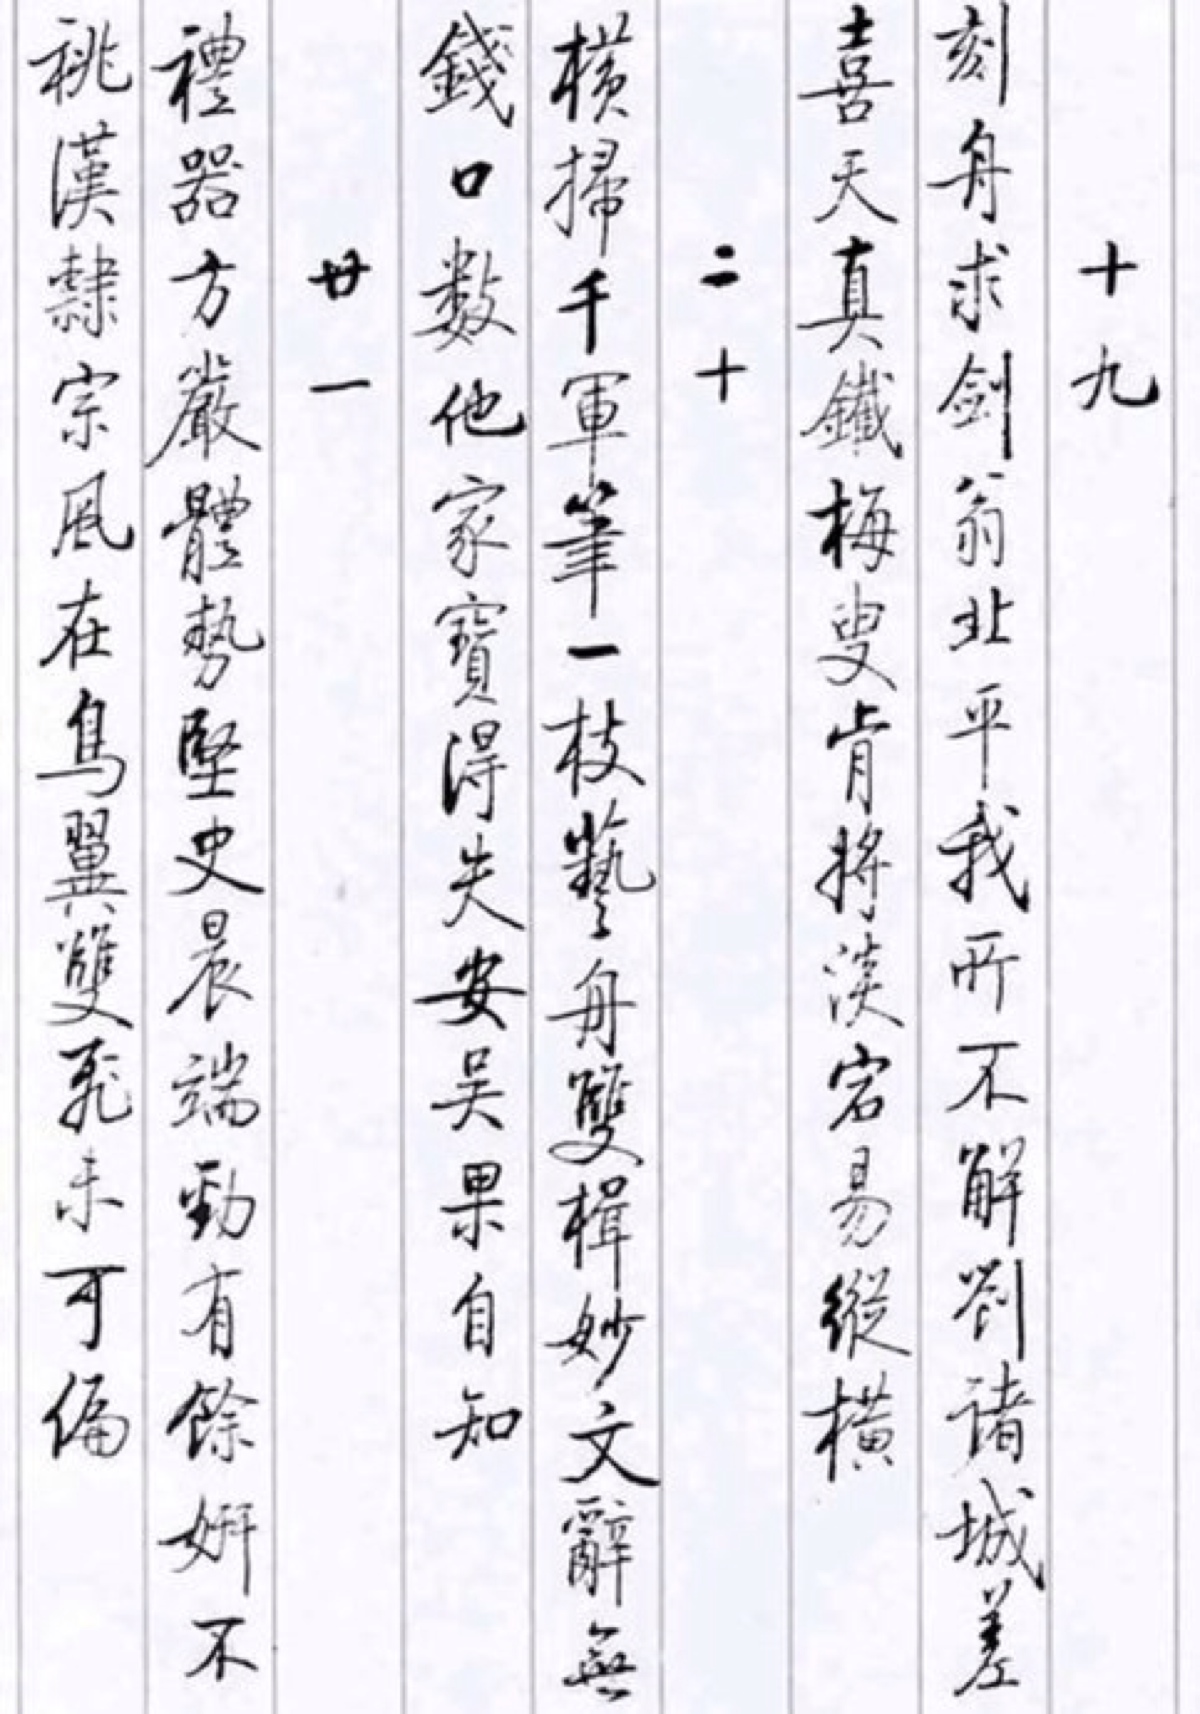 十九
刻舟求劍翁北平我所不解劉諸城差
喜天真鐵梅叟肯將淡宕易縱橫
二十
橫掃千軍筆一枝藝舟雙楫妙文辭無
錢口數他家寶得失安吳果自知
廿一
禮器方嚴體勢堅史晨端勁有餘妍不
祧漢隸宗風在鳥翼雙飛未可偏